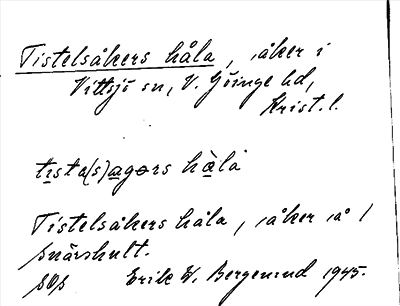 Tistelsåkers håla, åker i
Vittsjö sn, V. Göinge hd,
Krist. l.
tista(s)agors hàlå
Tistelsåkers håla, åker å
Snärshult.
Erik W. Bergenrud 1945.